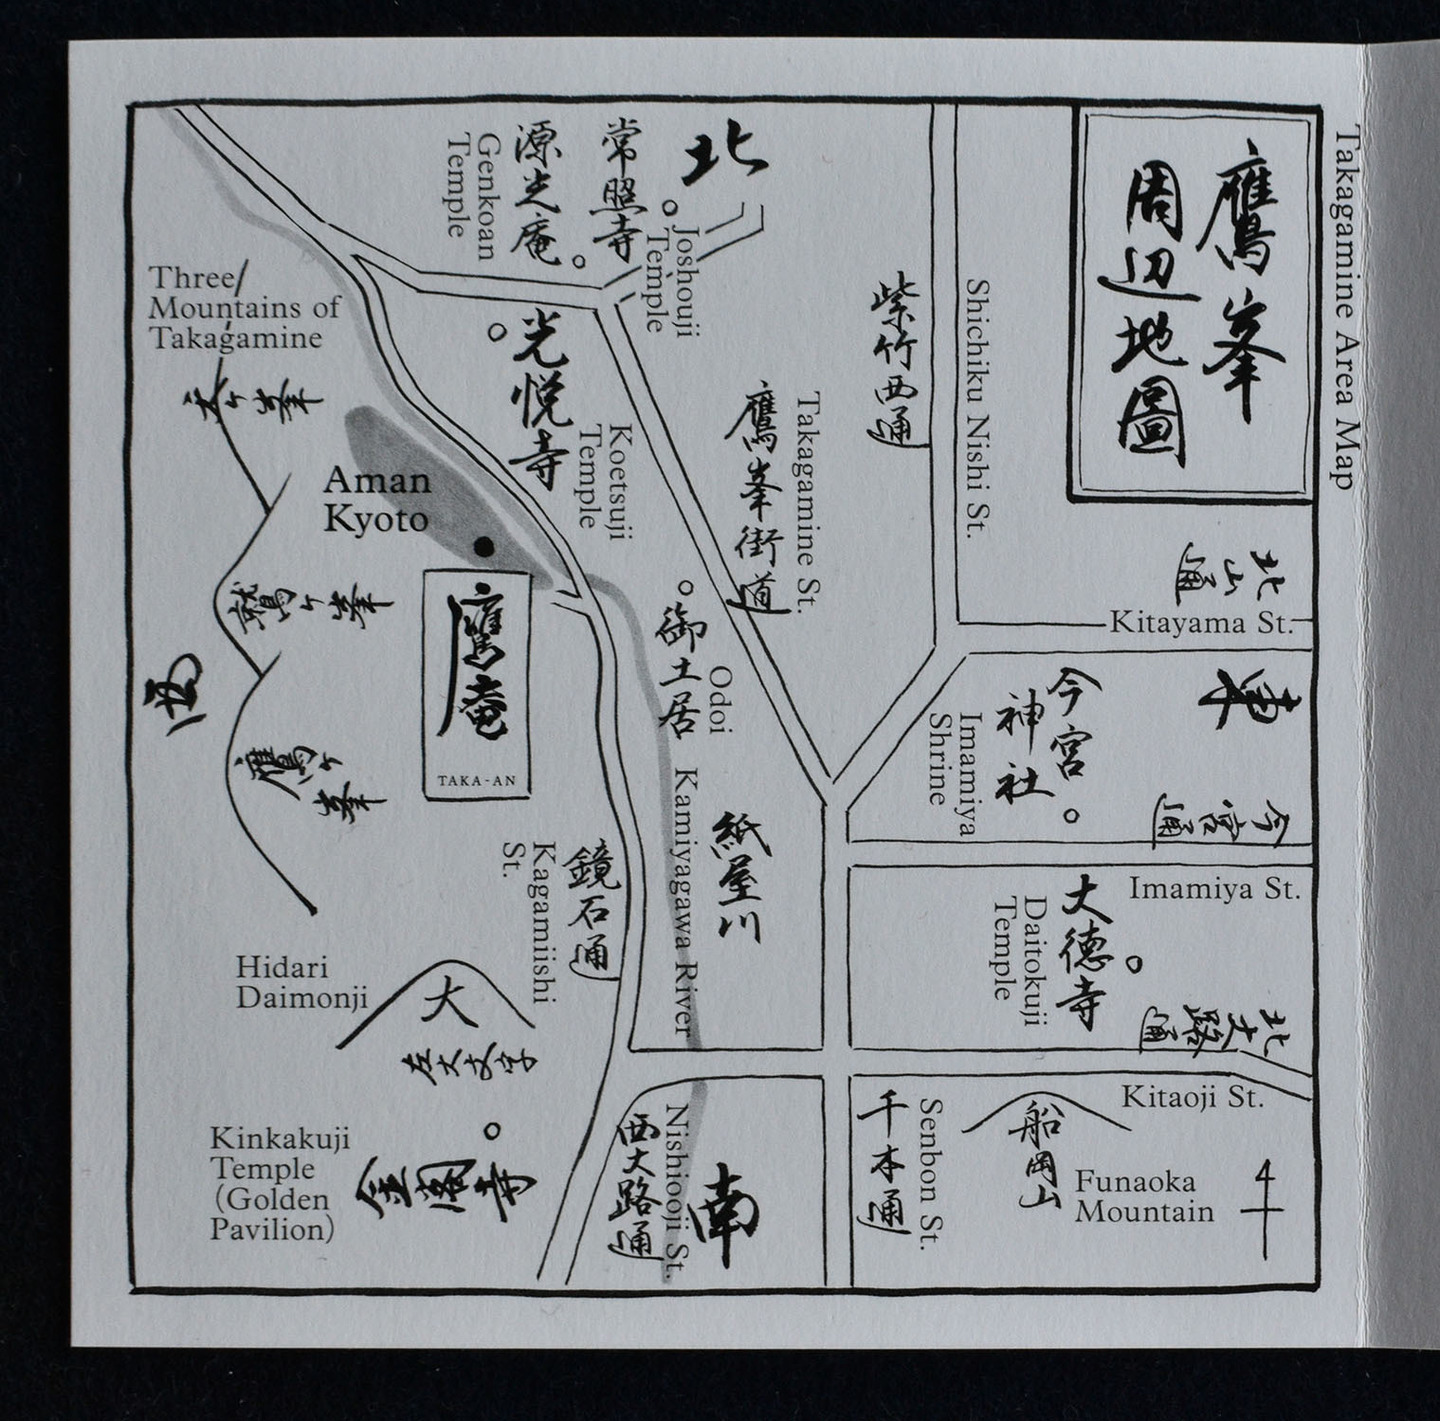 Takagamine Area Map
鷹峯
周辺地圖
北
常照寺
Joshouji
Temple
源光庵
Genkoan
Temple
紫竹西通
Shichiku Nishi St.
Three
Mountains of
Takagamine
天ヶ峯
鷲ヶ峯
鷹ヶ峯
光悦寺
Koetsuji
Temple
鷹峯街道
Takagamine St.
Aman
Kyoto
鷹庵
TAKA-AN
御土居
Odoi
北山通
Kitayama St.
東
西
今宮
神社
Imamiya
Shrine
今宮通
Imamiya St.
紙屋川
Kamiyagawa River
鏡石通
Kagamiishi
St.
大徳寺
Daitokuji
Temple
北大路通
Kitaoji St.
Hidari
Daimonji
大
左大文字
Kinkakuji
Temple
(Golden
Pavilion)
金閣寺
西大路通
Nishiooji St.
南
千本通
Senbon St.
船岡山
Funaoka
Mountain